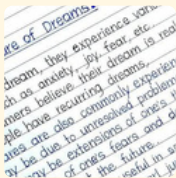 re of Dreams:
dream, they experience vari
ch as anxiety, joy, fear, etc.
mers believe their dream is real
ple have recurring dreams,
ares are also commonly experien
be due to unresolved problem
ay be extensions of one's th
of one's fears and d
t the future.
useful in s